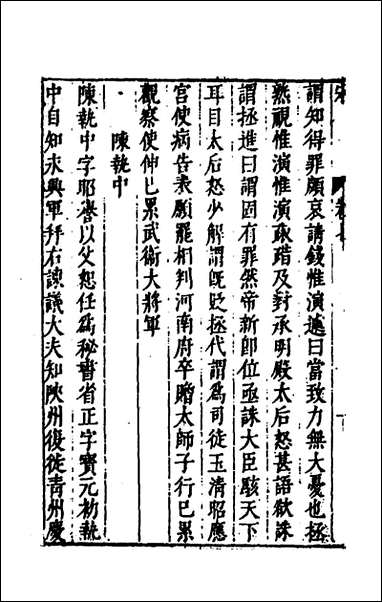 謂知得罪頗哀請錢惟演遽曰當致力無大憂也拯
熟視惟演惟演踧踖及對承明殿太后怒甚語欲誅
謂拯進曰謂固有罪然帝新即位亟誅大臣駭天下
耳目太后怒少解謂既貶拯代謂爲司徒玉清昭應
宮使病告表願罷相判河南府卒贈太師子行已累
觀察使伸已累武衛大將軍
陳執中
陳執中字昭譽以父恕任爲秘書省正字寶元初執
中自知永興軍拜右諫議大夫知陝州復徙青州慶